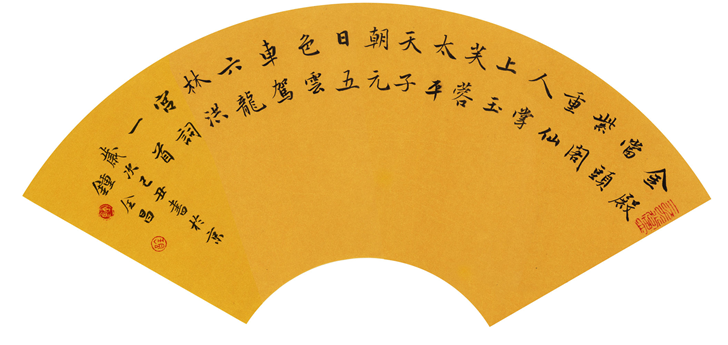 金殿
當頭
紫閣
重仙
人掌
上玉
芙蓉
太平
天子
朝元
日五
色雲
車駕
六龍
林洪
宮詞
一首
歲次乙丑書於京
鍾金昌